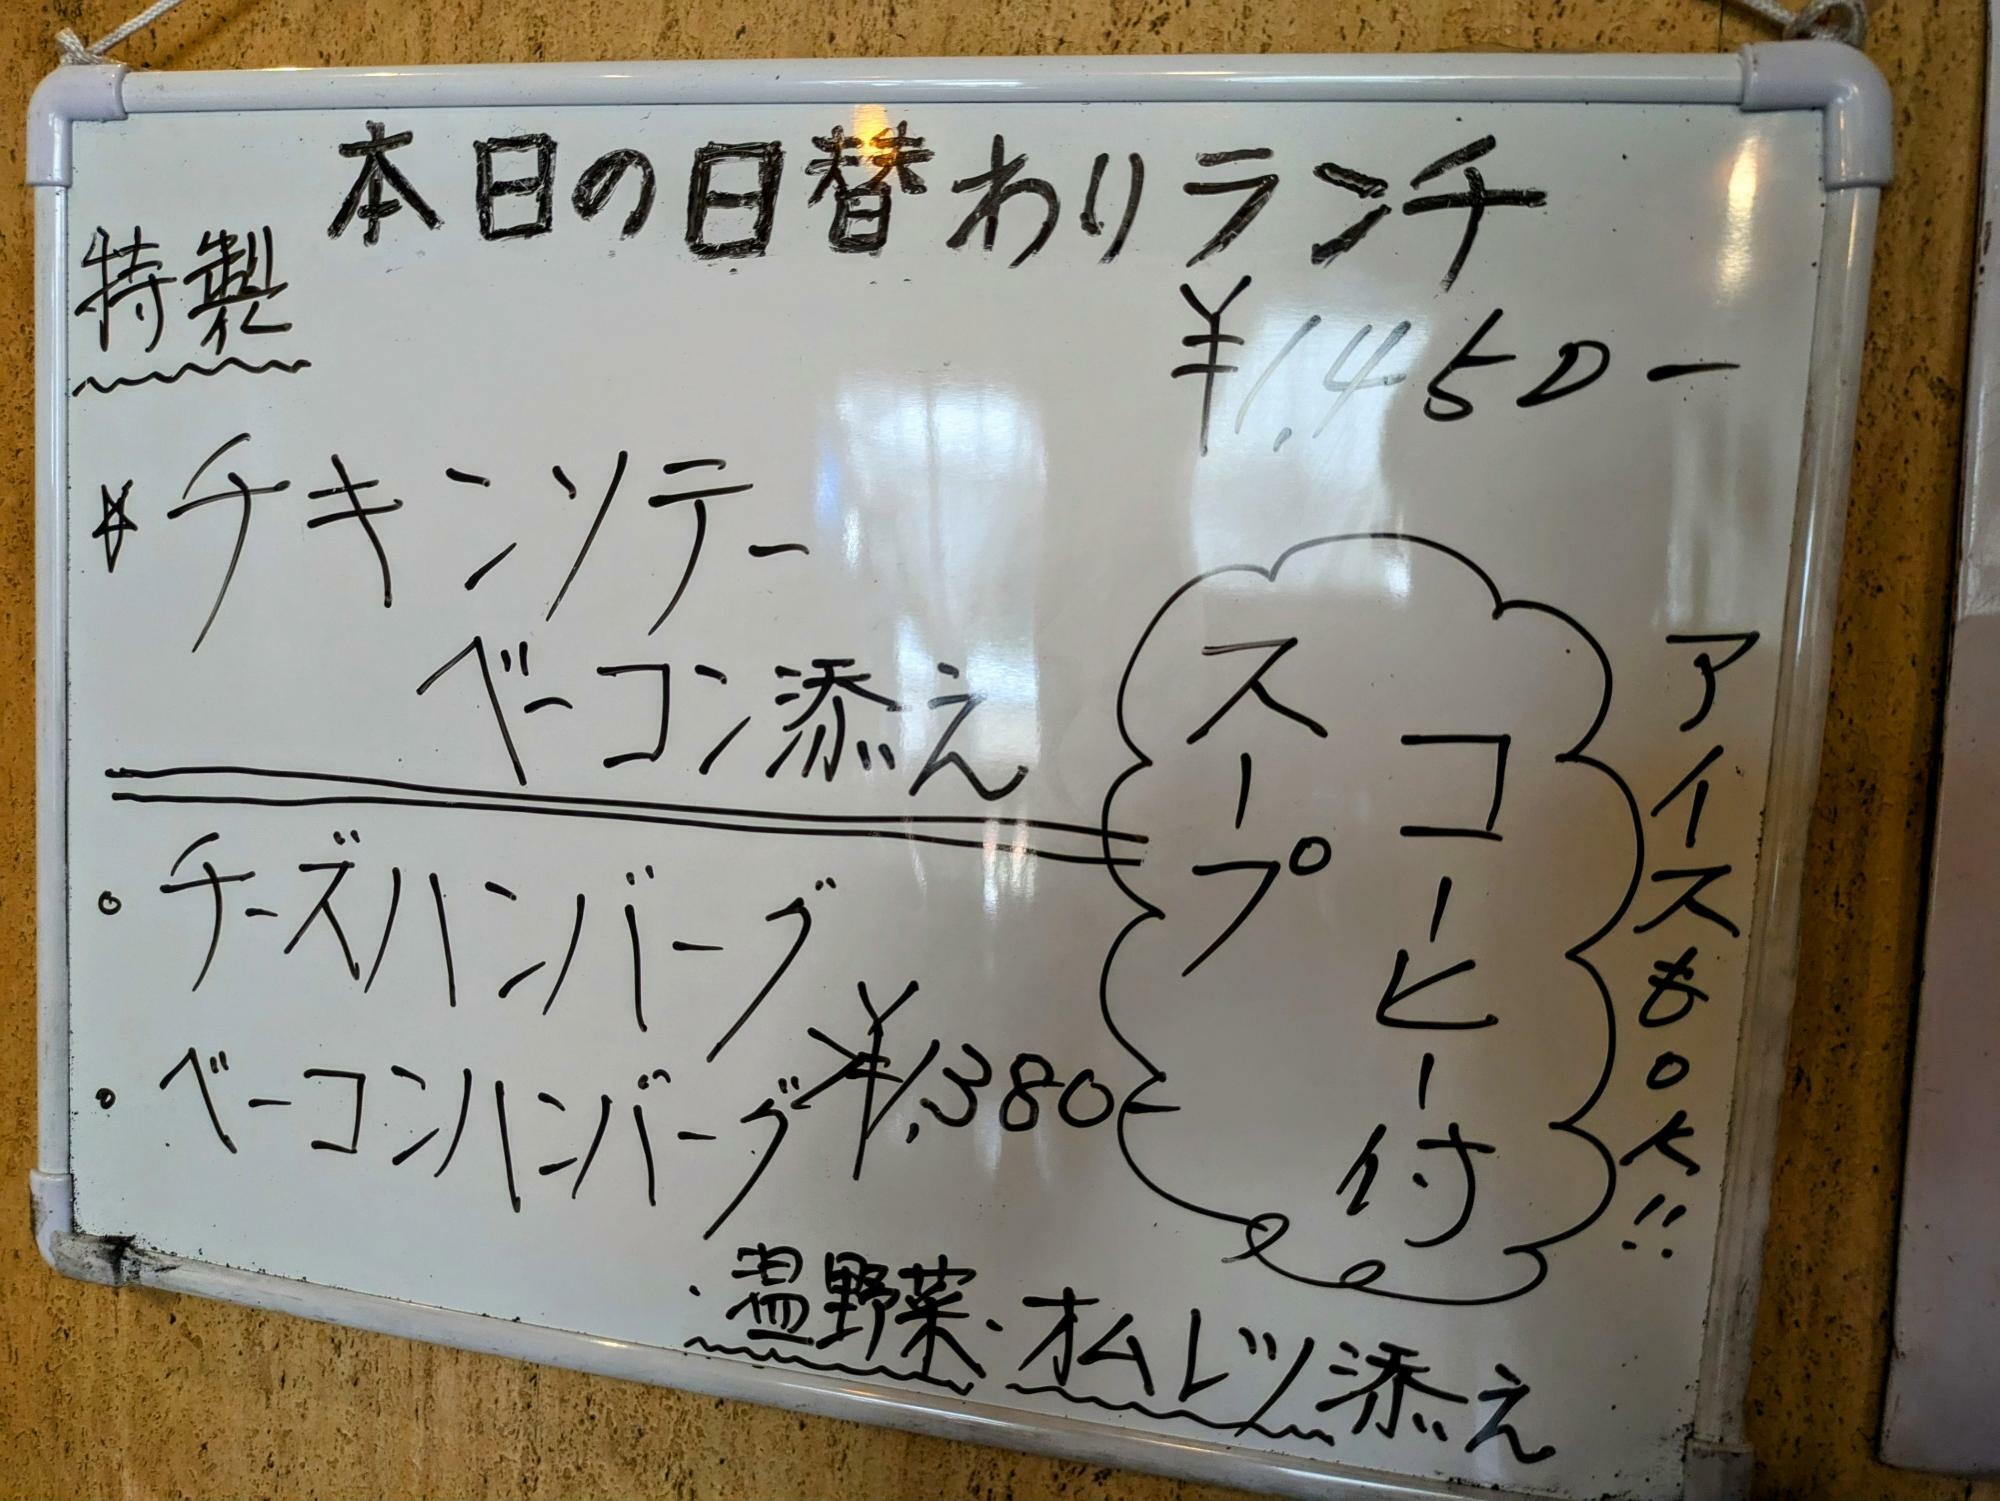 本日の日替わりランチ
特製
¥1,450ー
☆チキンソテー
ベーコン添え
◦チーズハンバーグ
◦ベーコンハンバーグ
¥1,380ー
スープ
コーヒー付
アイスもOK!!
・温野菜・オムレツ添え